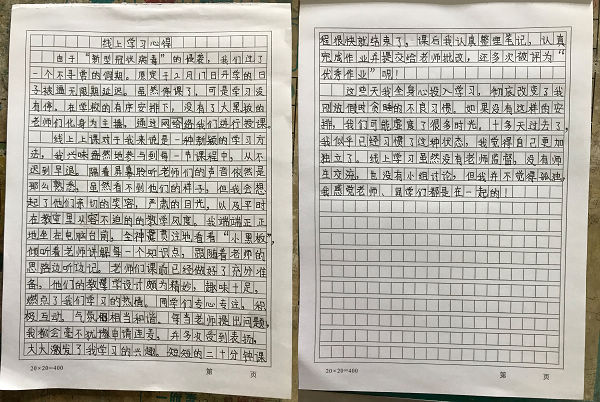 线上学习心得
由于“新型冠状病毒”的侵袭，我们过了
一个不寻常的假期。原定于2月17日开学的日
子被通无限期延迟。虽然停课了，可是学习没
有停，在学校的有序安排下，没有了大黑板的
老师们化身为主播，通过网络给我们进行授课。
线上上课对于我来说是一种新颖的学习方
法，我兴味盎然地参与到每一节课程中，从不
迟到早退。隔着屏幕聆听老师们的声音依然是
那么熟悉。虽然看不到他们的样子，但我会想
起了他们亲切的笑容、严肃的目光，以及平时
在教室里从容不迫的的教学风度。我端端正正
地坐在电脑台前，全神贯注地看着“小黑板”，
倾听着老师讲解每一个知识点，跟随着老师的
思路边听边记。老师们课前已经做好了充分准
备，他们的教学设计颇为精妙，趣味十足，
燃点了我们学习的热情。同学们专心专注，积
极互动，气氛相当和谐。每当老师提出问题，
我都会毫不犹豫申请连麦，并多次受到表扬，
大大激发了我学习的兴趣。短短的二十分钟课
20×20=400
第 页
程很快就结束了。课后我认真整理笔记，认真
完成作业并提交给老师批改，还多次被评为“
优秀作业”呢！
这些天我全身心投入学习，彻底改变了我
刚放假时贪睡的不良习惯。如果没有这样的安
排，我们可能虚度了很多时光。十多天过去了，
我似乎已经习惯了这种状态，我觉得自己更加
独立了。线上学习虽然没有老师监督，没有师
生交流，也没有小组讨论，但我并不觉得孤独，
我感觉老师、同学们都是在一起的！
20×20=400
第 页